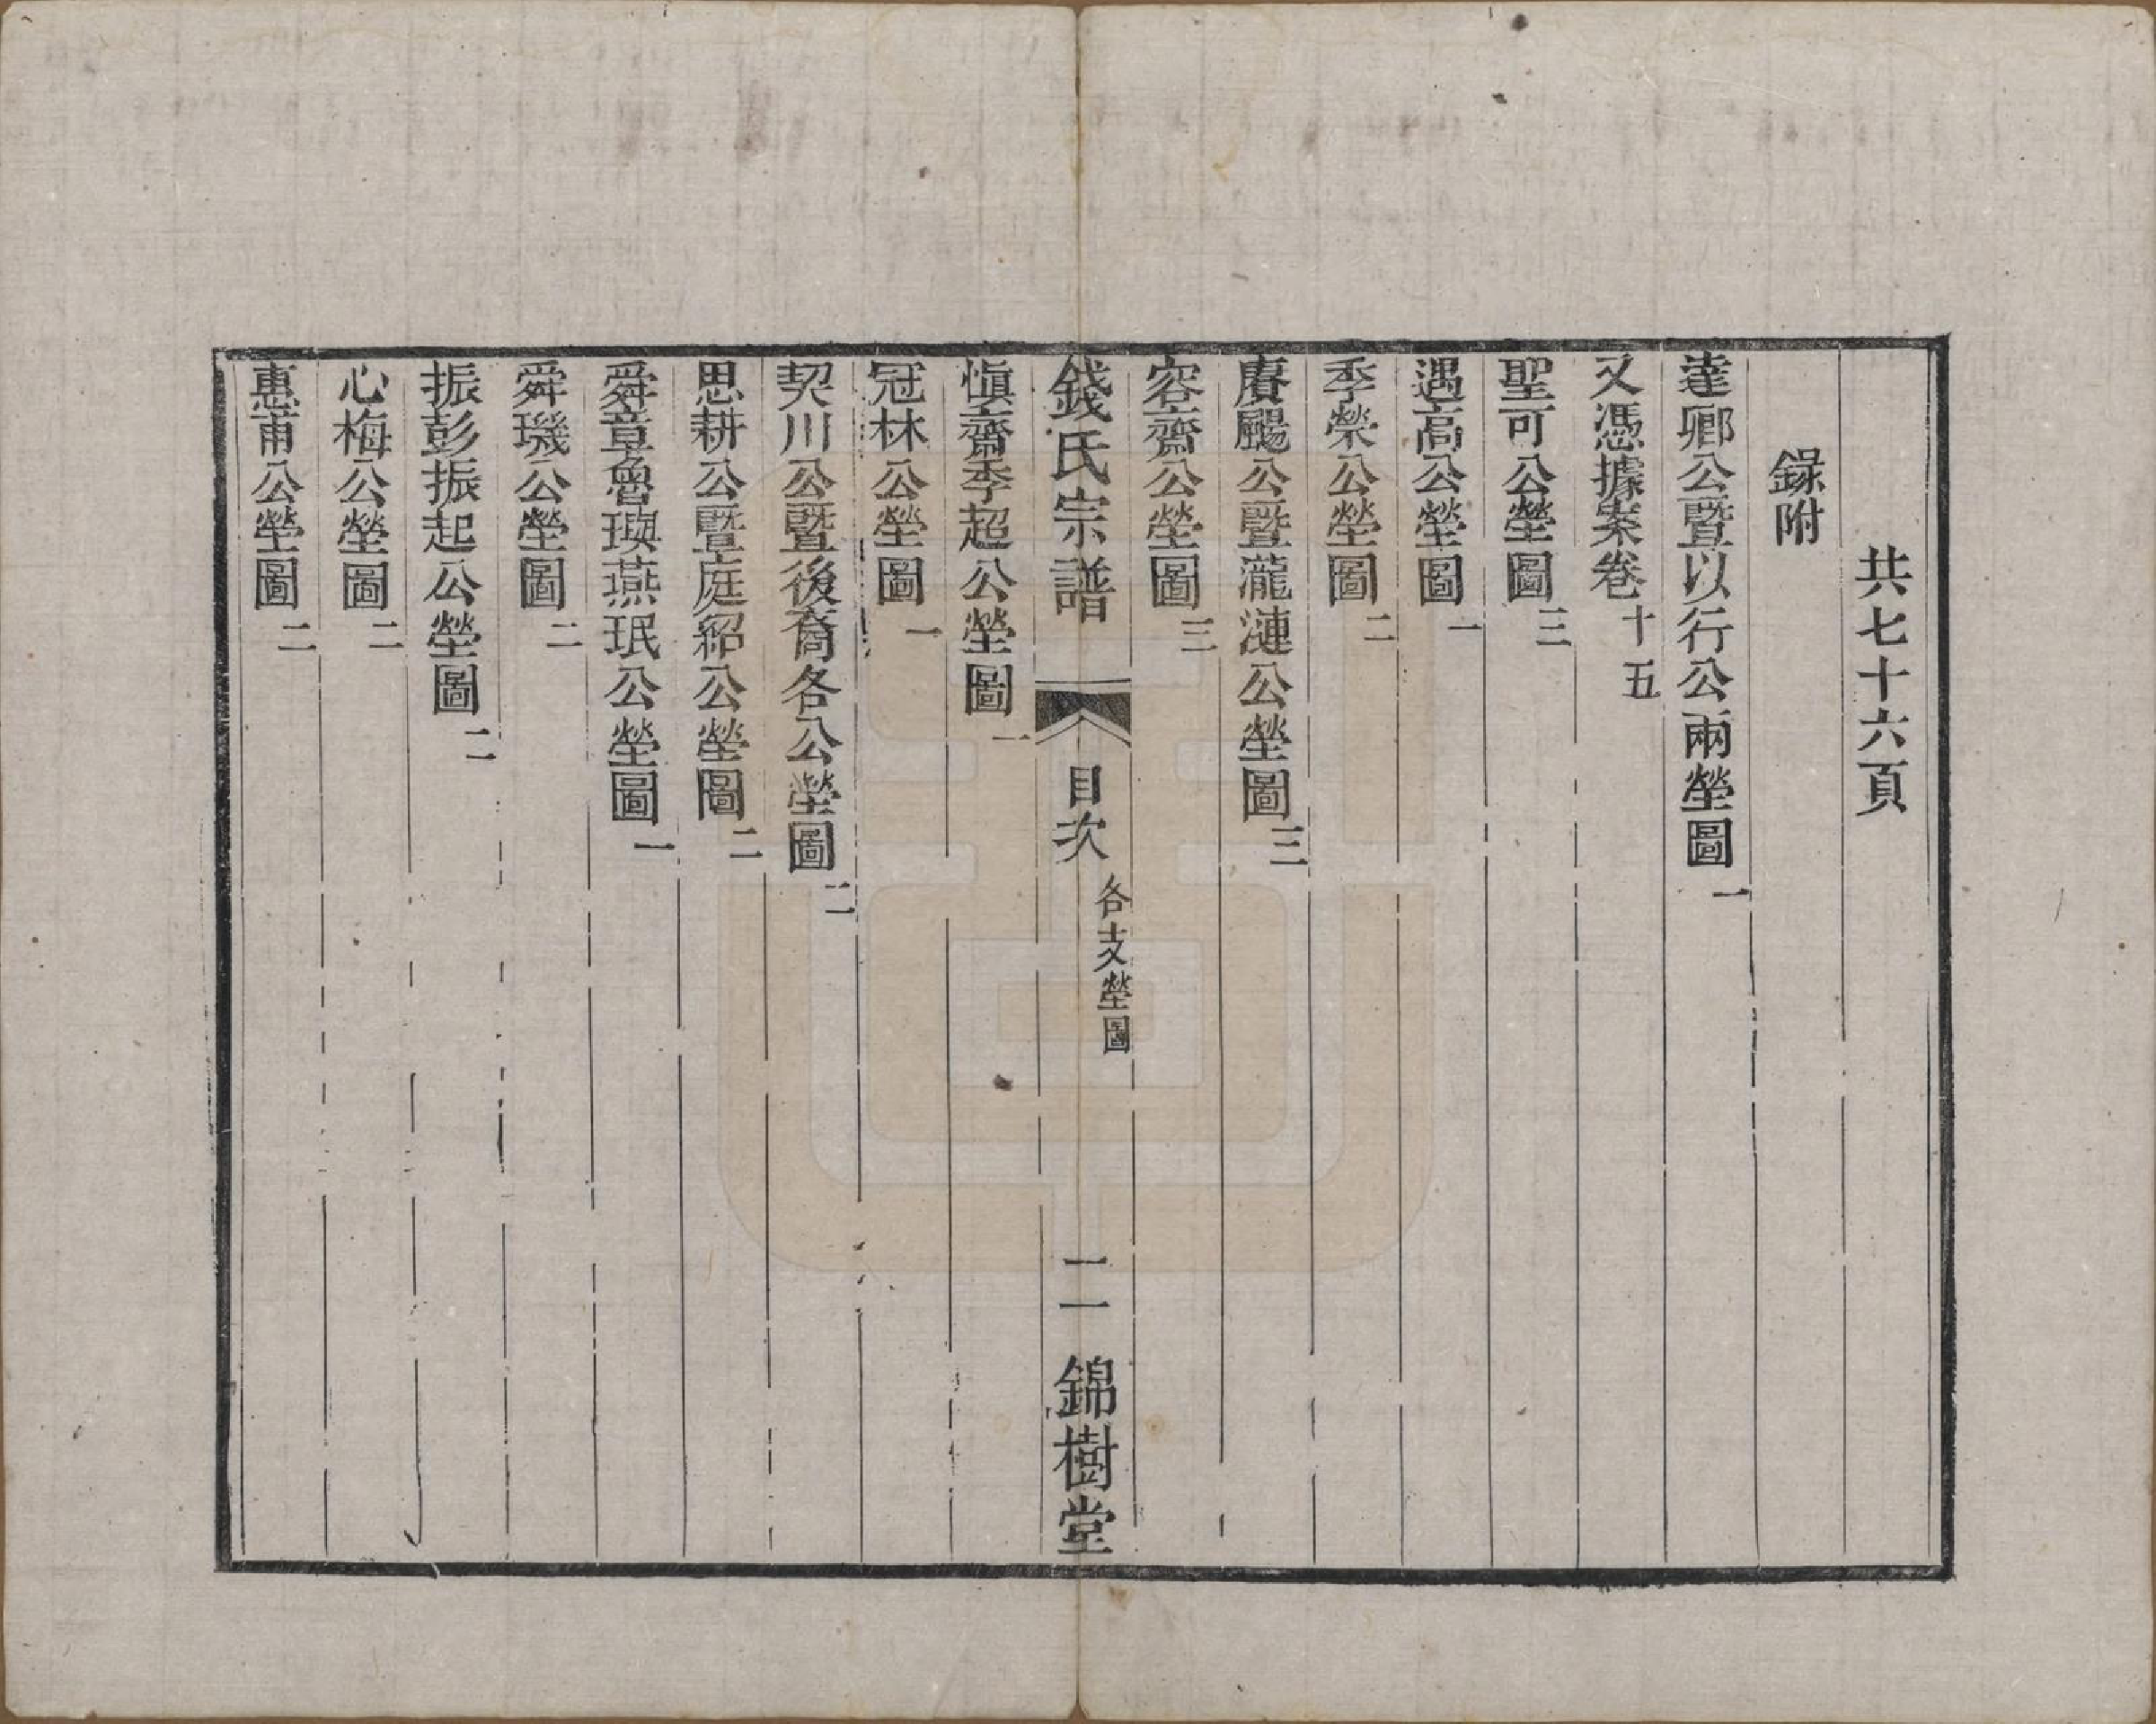 共七十六頁
錄附
達卿公暨以行公兩塋圖一
又憑據案卷十五
聖可公塋圖三
遇高公塋圖一
季榮公塋圖二
賡颺公暨瀧漣公塋圖三
容齋公塋圖三
錢氏宗譜 目次 各支塋圖 二 錦樹堂
愼齋季超公塋圖一
冠林公塋圖一
契川公暨後裔各公塋圖二
思耕公暨庭紹公塋圖二
舜章魯瑛燕珉公塋圖一
舜璣公塋圖二
振彭振起公塋圖二
心梅公塋圖二
惠甫公塋圖二